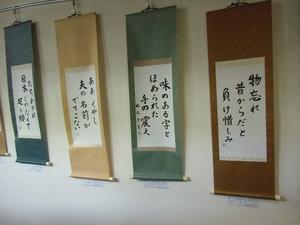 物忘れ
昔からだと
負け惜しみ
味のある字と
ほめられた
手の震え
ああくやし
夫の名前が
でてこない
たちあがれ
日本
足と腰